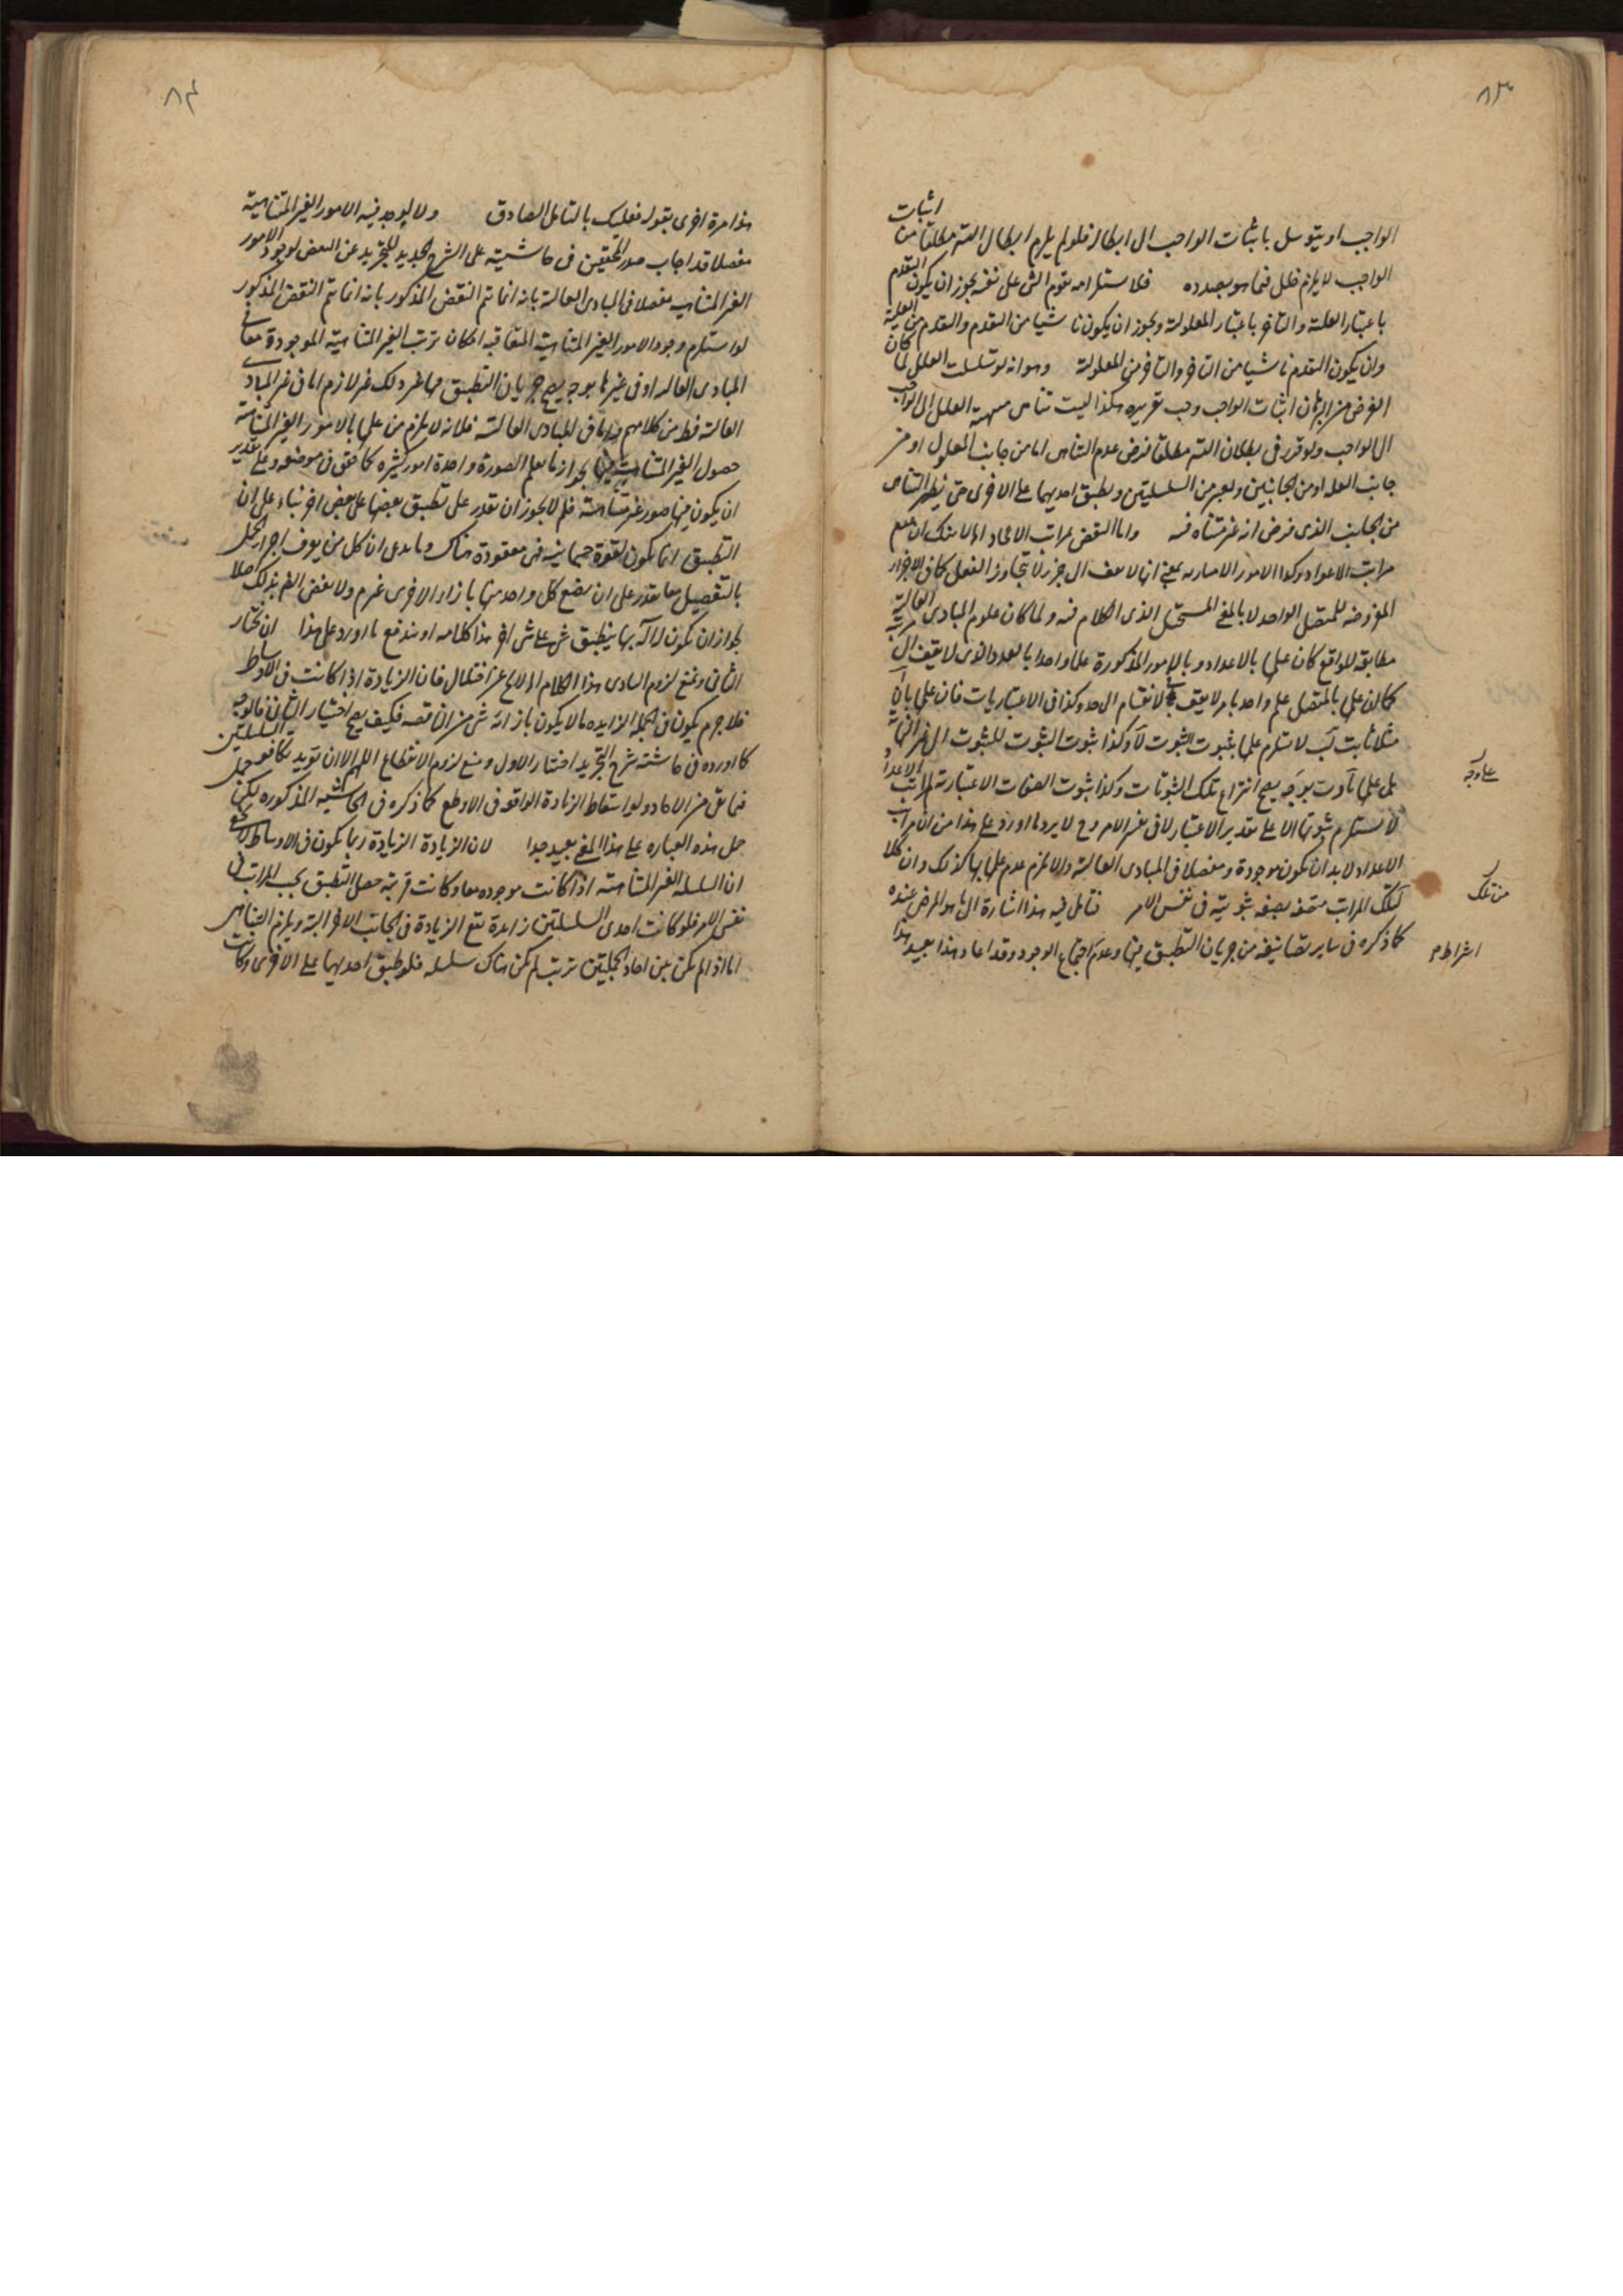 ٨٣
اثبات
الواجب او يتوسل باثبات الواجب الى ابطاله فلو لم يلزم ابطال التسم مطلقا من
الواجب لا يلزم خلل فيما هو بصدده فلاستلزامه تقدم الشئ على نفسه يجوز ان يكون التقدم
باعتبار العلية والتاخر باعتبار المعلولية ويجوز ان يكون ناشيا من التقدم والتقدم من العلية
وان يكون التقدم ناشيا من التاخر والتاخر من المعلولية وهو انه لو تسلسلت العلل لما كان
الغرض من البرهان اثبات الواجب وجب تقريره هكذا ليثبت تناهى سلسلة العلل الى الواجب
الى الواجب ولو قرر فى بطلان التسم مطلقا فرض عدم التناهى اما من جانب المعلول او من
جانب العلة او من الجانبين ويعتبر من السلسلتين ويطبق احديهما على الاخرى حتى يظهر التناهى
من الجانب الذى فرض انه غير متناه فيه واما النقض بمراتب الاعداد لا شك ان جميع
مراتب الاعداد وكذا الامور الاعتبارية بمعنى انها لا تقف الى حد لا تتجاوز الفعل كما فى الاجزاء
المفروضة للمتصل الواحد لا بالمعنى المستحيل الذى الكلام فيه ولما كان علوم المبادى العالية
مطابقة للواقع كان علمها بالاعداد وبالامور المذكورة علما واحدا بالعدد الذى لا يقف الى مرتبة
كما ان علمها بالمتصل علم واحد بامر لا يقف الانقسام الى حد وكذا فى الاعتباريات فان علمها بان آ
مثلا ثابت لب لا يستلزم علمها بثبوت الثبوت لآ وكذا ثبوت الثبوت للثبوت الى غير النهاية
بل علمها بآ وب بوجه يصح انتزاع تلك الثبوتات وكذا ثبوت الصفات الاعتبارية لمراتب الاعداد
لا يستلزم ثبوتها الا على تقدير الاعتبار لا فى نفس الامر وح لا يرد ما اورد على هذا من ان مراتب
الاعداد لا بد ان تكون موجودة ومفصلا فى المبادى العالية والا لزم عدم علمها بها كذلك وان كلا
لتلك المراتب متصفة بصفة ثبوتية فى نفس الامر فتامل فيه هذا اشارة الى ما هو المرضى عنده
كما ذكره فى ساير تصانيفه من جريان التطبيق فيها وعدم اجتماع الوجود وقد اعاد هذا بعيد هذا
على وجه
من تلك
اشتراط م
٨٤
هذا مرة اخرى بقوله فعليك بالتامل الصادق ولا يوجد فيه الامور الغير المتناهية
مفصلا قد اجاب صدر المحققين فى حاشيته على الشرح الجديد للتجريد عن النقض بوجود الامور
الغير المتناهية مفصلا فى المبادى العالية بانه انما تم النقض المذكور بانه انما تم النقض المذكور
لو استلزم وجود الامور الغير المتناهية المتعاقبة امكان ترتب الغير المتناهية الموجودة معا فى
المبادى العالية او فى غيرها بوجه يصح جريان التطبيق فيها غير ذلك غير لازم اما فى غير المبادى
العالية فظ من كلامهم واما فى المبادى العالية فلانه لا يلزم من علمها بالامور الغير المتناهية
حصول الغير المتناهية فيها لجواز ما يعلم الصورة واحدة امور كثيرة كما حقق فى موضعه وعلى تقدير
ان يكون فيها صور غير متناهية فلم لا يجوز ان تقدر على تطبيق بعضها على بعض اخر بناء على ان
التطبيق انما يكون لقوة جسمانية فهى مفقودة هناك وما يدرى ان كل من يعرف اجزاء الكل
بالتفصيل معا يقدر على ان يضع كل واحد منها بازاء الاخرى غيرهم ولا نقض الفهم بذلك اصلا
لجواز ان يكون له آلة بها ينطبق شئ على شئ اخر هذا كلامه او يندفع ما اورد على هذا ان نختار
الثانى ونمنع لزوم التساوى هذا الكلام لا يخلو عن اختلال فان الزيادة اذا كانت فى الاوساط
فلا جرم يكون فى الجملة الزايدة ما لا يكون بازائه شئ من الناقصة فكيف يصح اختيار الثانى فالوجه
كما اورده فى حاشية شرح التجريد اختار الاول ومنع لزوم الانقطاع اللهم الا ان يؤيد تكافؤ السلسلتين
فيما بقى من الاحاد ولو اسقاط الزيادة الواقعة فى الاوساط كما ذكره فى الحاشية المذكورة لكن حمل
حمل هذه العبارة على هذا المعنى بعيد جدا لان الزيادة الزيادة ربما يكون فى الاوساط لا يخفى
ان السلسلة الغير المتناهية اذا كانت موجودة معا وكانت مرتبة حصل التطبيق بحسب المراتب فى
نفس الامر فلو كانت احدى السلسلتين زايدة تقع الزيادة فى الجانب الاخر البتة ويلزم التناهى
اما اذا لم يكن بين احاد الجملتين ترتب لم يكن هناك سلسلة فلو طبق احديهما على الاخرى وكانت